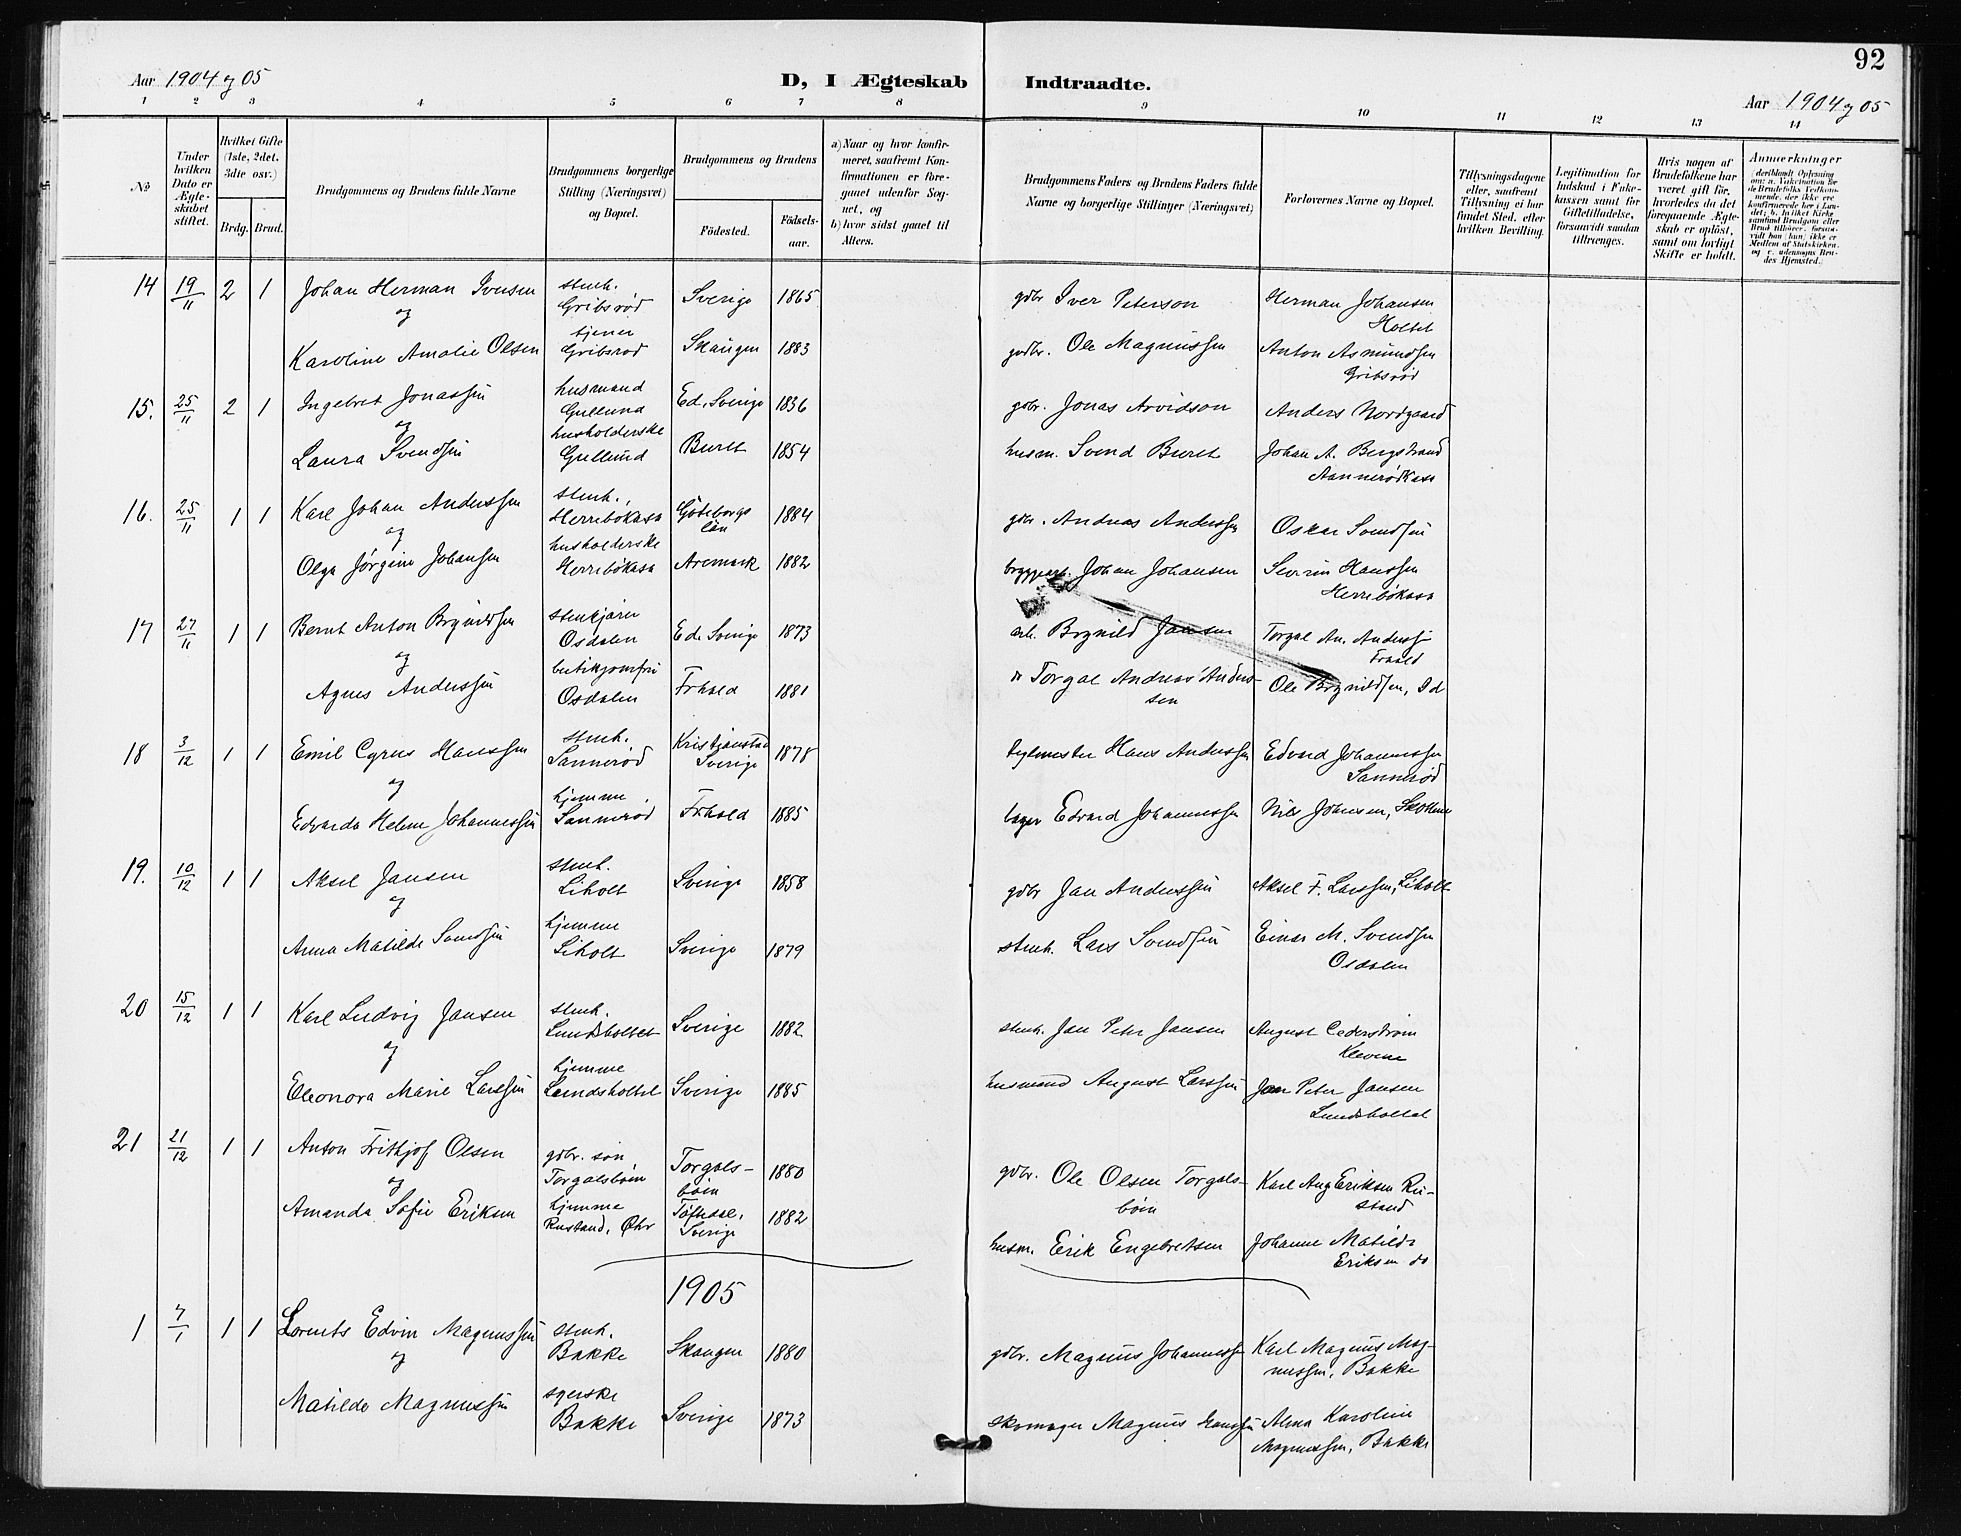 92
Aar 1904 og 05
D, I Ægteskab Indtraadte.
Aar 1904 og 05
1 2 3 4 5 6 7 8 9 10 11 12 13 14
№
Under hvilken Dato er Ægteskabet stiftet.
Hvilket Gifte (1ste, 2det, 3dte osv.)
Brdg. Brud.
Brudgommens og Brudens fulde Navne
Brudgommens borgerlige Stilling (Næringsvei) og Bopæl.
Brudgommens og Brudens
Födested. Födsels-aar.
a) Naar og hvor konfirmeret, saafremt Konfirmationen er foregaaet udenfor Sognet, og
b) hvor sidst gaaet til Alters.
Brudgommens Faders og Brudens Faders fulde Navne og borgerlige Stillinger (Næringsvei)
Forlovernes Navne og Bopæl.
Tillysningsdagene eller, saafremt Tillysning ei har fundet Sted, efter hvilken Bevilling.
Legitimation for Indskud i Enkekassen samt for Giftetilladelse, forsaavidt saadan tiltrænges.
Hvis nogen af Brudefolkene har været gift för, hvorledes da det foregaaende Ægteskab er oplöst, samt om lovligt Skifte er holdt.
Anmærkninger
14 19/11 2 1 Johan Herman Iversen stenh. Gribsrød Sverige 1865 gdbr Iver Peterson Herman Johansen Holtet
og
Karoline Amalie Olsen tjener Gribsrød Skaugen 1883 gdbr. Ole Magnussen Anton Asmundsen Gribsrød
15. 25/11 2 1 Ingebret Jonassen husmand Gullund Ed, Sverige 1836 gdbr. Jonas Arvidson Anders Nordgaard
og
Laura Svendsen husholderske Gullund Buret 1854 husm. Svend Buret Johan A. Bergstrand
16. 25/11 1 1 Karl Johan Anderssen stenh., Herrebøkasa Göteborgs län 1884 gdbr. Andreas Anderssen Oskar Svendsen
og
Olga Jørgine Johansen husholderske Herrebøkasa Aremark 1882 bryggearb. Johan Johansen Severin Hanssen Herrebøkasa
17 27/11 1 1 Bernt Anton Brynildsen stenkjører Osdalen Ed, Sverige 1873 arb. Brynild Jansen Torgal An. Anderssen Frhald
og
Agnes Anderssen butikjomfru Osdalen Frhald 1881 Torgal Andreas Anderssen Ole Brynildsen, Id
18 3/12 1 1 Emil Cyrus Hanssen stenh. Sannerød Kristianstad Sverige 1878 teglmester Hans Anderssen Edvard Johannessen Sannerød
og
Edvarda Helene Johannessen hjemme, Sannerød Frhald 1885 bager Edvard Johannessen Nils Johansen,
19. 10/12 1 1 Aksel Jansen stenh. Liholt Sverige 1858 gdbr Jan Anderssen Aksel F. Larssen, Liholt
og
Anna Matilde Svendsen hjemme Liholt Sverige 1879 stenh. Lars Svendsen Einar M. Svendsen Osdalen
20 15/12 1 1 Karl Ludvig Jansen stenh. Lundsholtet Sverige 1882 stenh. Jan Peter Jansen August Cederstrøm Klevene
og
Eleonora Marie Larssen hjemme Lundsholtet Sverige 1885 husmand August Larssen Jan Peter Jansen Lundsholtet
21 21/12 1 1 Anton Frithjof Olsen gdbr. søn Torgalsbøen Torgals-bøen 1880 gdbr. Ole Olsen Torgals-bøen Karl Aug Eriksen Ru-stand
og
Amanda Sofie Eriksen hjemme Rustand, Øhr Töftedal, Sverige 1882 husm. Erik Engebretsen Johanne Matilde Eriksen do
1905
1 7/1 1 1 Lorents Edvin Magnussen stenh. Bakke Skaugen 1880 gdbr. Magnus Johannessen Karl Magnus Mag-nussen, Bakke
og
Matilde Magnussen syerske Bakke Sverige 1873 skomager Magnus Hanssen Alma Karoline Magnussen, Bakke